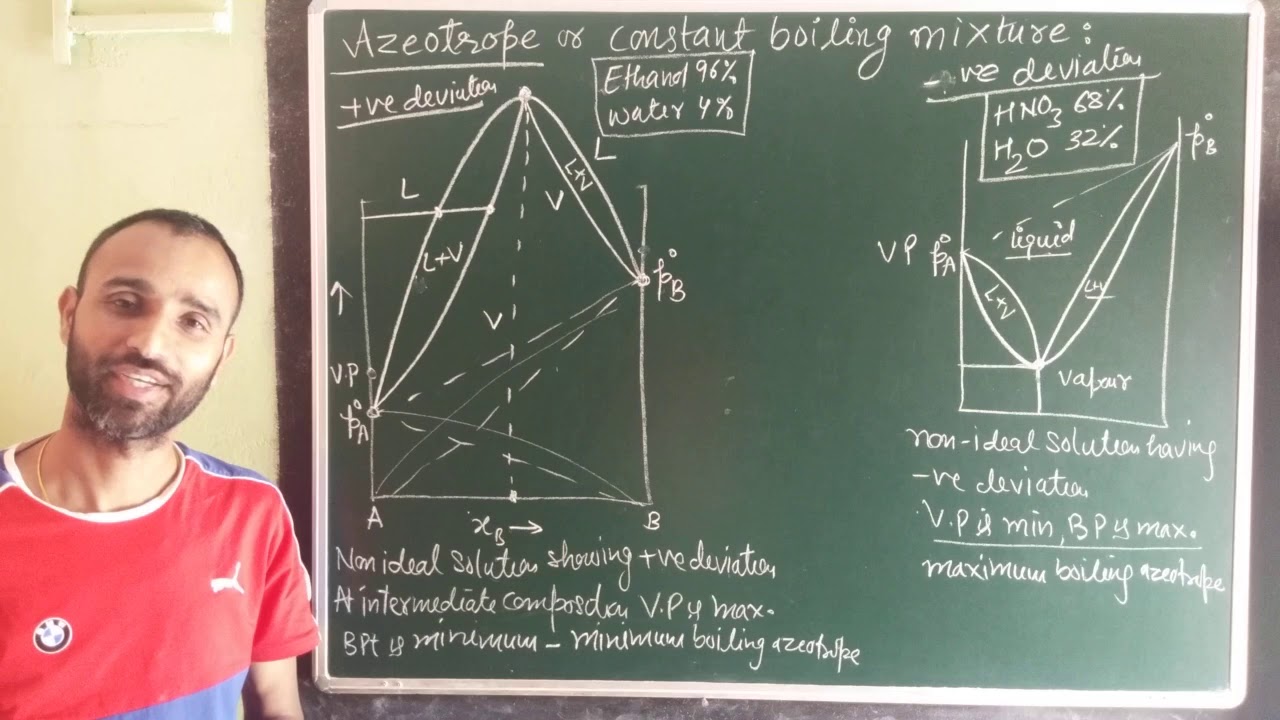 Azeotrope or constant boiling mixture:
+ve deviation
Ethanol 96%
water 4%
L
L
L+V
V
L+V
V
↑
V.P
p°A
p°B
A
xB →
B
Non ideal solution showing +ve deviation
At intermediate composition V.P is max.
BPt is minimum – minimum boiling azeotrope
-ve deviation
HNO3 68%
H2O 32%
p°B
VP p°A
liquid
L+V
L+V
vapour
non-ideal solution having
-ve deviation
V.P is min, BP is max.
maximum boiling azeotrope
BMW